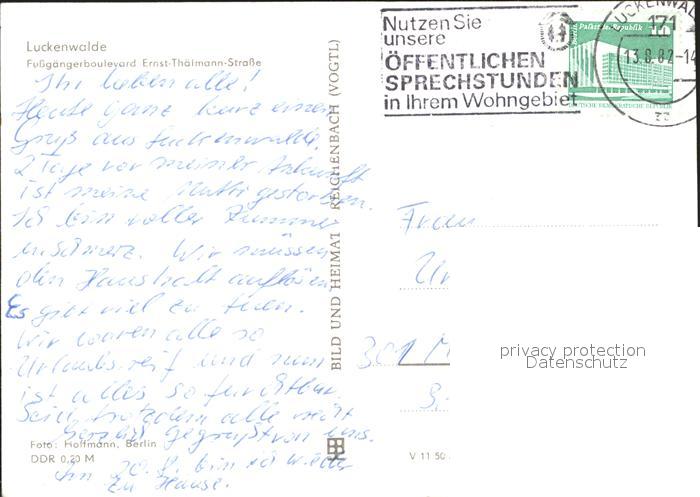 Luckenwalde
Fußgängerboulevard Ernst-Thälmann-Straße
Ihr lieben alle!
Heute ganz kurz einen
Gruß aus Luckenwalde.
2 Tage vor meiner Ankunft
ist meine Mutti gestorben.
Ich bin voller Kummer
und Schmerz. Wir müssen
den Haushalt auflösen
Es gibt viel zu tun.
Wir waren alle so
Urlaubsreif und nun
ist alles so furchtbar.
Seid trotzdem alle recht
herzlich gegrüßt von uns.
Am 20.8. bin ich wieder
zu Hause.
Foto: Hoffmann, Berlin
DDR 0,20 M
BILD UND HEIMAT REICHENBACH (VOGTL)
Nutzen Sie
unsere
ÖFFENTLICHEN
SPRECHSTUNDEN
in Ihrem Wohngebiet
LUCKENWAL
171
13.8.82-14
zz
Palast der Republik
10
DEUTSCHE DEMOKRATISCHE REPUBLIK
Frau
Ur
301 M
S
V 11 50
privacy protection
Datenschutz